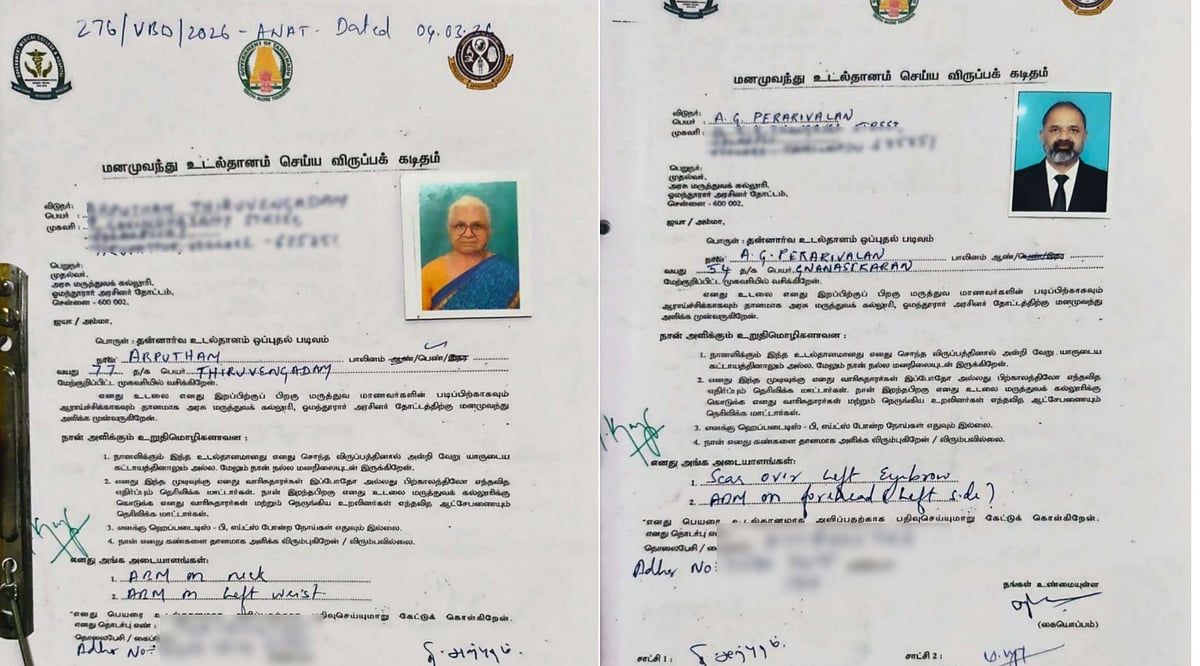 276/VBD/2026 - ANAT. Dated 04.03.26
GOVERNMENT OF TAMILNADU
மனமுவந்து உடல்தானம் செய்ய விருப்பக் கடிதம்
விடுநர்:
பெயர் :
முகவரி :
பெறுநர்:
முதல்வர்,
அரசு மருத்துவக் கல்லூரி,
ஓமந்தூரார் அரசினர் தோட்டம்,
சென்னை - 600 002.
ஐயா / அம்மா,
பொருள் : தன்னார்வ உடல்தானம் ஒப்புதல் படிவம்
நான் ARPUTHAM பாலினம் ஆண்/பெண்/இதர
வயது 77 த/க பெயர் THIRUVENGADAM
மேற்குறிப்பிட்ட முகவரியில் வசிக்கிறேன்.
எனது உடலை எனது இறப்பிற்குப் பிறகு மருத்துவ மாணவர்களின் படிப்பிற்காகவும்
ஆராய்ச்சிக்காகவும் தானமாக அரசு மருத்துவக் கல்லூரி, ஓமந்தூரார் அரசினர் தோட்டத்திற்கு மனமுவந்து
அளிக்க முன்வருகிறேன்.
நான் அளிக்கும் உறுதிமொழிகளாவன :
1. நானளிக்கும் இந்த உடல்தானமானது எனது சொந்த விருப்பத்தினால் அன்றி வேறு யாருடைய
கட்டாயத்தினாலும் அல்ல. மேலும் நான் நல்ல மனநிலையுடன் இருக்கிறேன்.
2. எனது இந்த முடிவுக்கு எனது வாரிசுதாரர்கள் இப்போதோ அல்லது பிற்காலத்திலோ எந்தவித
எதிர்ப்பும் தெரிவிக்க மாட்டார்கள். நான் இறந்தபிறகு எனது உடலை மருத்துவக் கல்லூரிக்கு
கொடுக்க எனது வாரிசுதாரர்கள் மற்றும் நெருங்கிய உறவினர்கள் எந்தவித ஆட்சேபணையும்
தெரிவிக்க மாட்டார்கள்.
3. எனக்கு ஹெப்படைடிஸ் - பி, எய்ட்ஸ் போன்ற நோய்கள் எதுவும் இல்லை.
4. நான் எனது கண்களை தானமாக அளிக்க விரும்புகிறேன் / விரும்பவில்லை.
எனது அங்க அடையாளங்கள்:
1. ABM on neck
2. ABM on left wrist
"எனது பெயரை பதிவுசெய்யுமாறு கேட்டுக் கொள்கிறேன்.
எனது தொடர்பு எண் :
தொலைபேசி / கைப்
Adhr No:
தி. அற்புதம்.
மனமுவந்து உடல்தானம் செய்ய விருப்பக் கடிதம்
விடுநர்:
பெயர் : A. G. PERARIVALAN
முகவரி :
பெறுநர்:
முதல்வர்,
அரசு மருத்துவக் கல்லூரி,
ஓமந்தூரார் அரசினர் தோட்டம்,
சென்னை - 600 002.
ஐயா / அம்மா,
பொருள் : தன்னார்வ உடல்தானம் ஒப்புதல் படிவம்
நான் A. G. PERARIVALAN பாலினம் ஆண்/பெண்/இதர
வயது 54 த/க பெயர் GNANASEKARAN
மேற்குறிப்பிட்ட முகவரியில் வசிக்கிறேன்.
எனது உடலை எனது இறப்பிற்குப் பிறகு மருத்துவ மாணவர்களின் படிப்பிற்காகவும்
ஆராய்ச்சிக்காகவும் தானமாக அரசு மருத்துவக் கல்லூரி, ஓமந்தூரார் அரசினர் தோட்டத்திற்கு மனமுவந்து
அளிக்க முன்வருகிறேன்.
நான் அளிக்கும் உறுதிமொழிகளாவன :
1. நானளிக்கும் இந்த உடல்தானமானது எனது சொந்த விருப்பத்தினால் அன்றி வேறு யாருடைய
கட்டாயத்தினாலும் அல்ல. மேலும் நான் நல்ல மனநிலையுடன் இருக்கிறேன்.
2. எனது இந்த முடிவுக்கு எனது வாரிசுதாரர்கள் இப்போதோ அல்லது பிற்காலத்திலோ எந்தவித
எதிர்ப்பும் தெரிவிக்க மாட்டார்கள். நான் இறந்தபிறகு எனது உடலை மருத்துவக் கல்லூரிக்கு
கொடுக்க எனது வாரிசுதாரர்கள் மற்றும் நெருங்கிய உறவினர்கள் எந்தவித ஆட்சேபணையும்
தெரிவிக்க மாட்டார்கள்.
3. எனக்கு ஹெப்படைடிஸ் - பி, எய்ட்ஸ் போன்ற நோய்கள் எதுவும் இல்லை.
4. நான் எனது கண்களை தானமாக அளிக்க விரும்புகிறேன் / விரும்பவில்லை.
எனது அங்க அடையாளங்கள்:
1. Scar over left Eyebrow
2. ABM on forehead (left side)
"எனது பெயரை உடல்தானமாக அளிப்பதற்காக பதிவுசெய்யுமாறு கேட்டுக் கொள்கிறேன்.
எனது தொடர்பு எ
தொலைபேசி / கை
Adhr No:
தங்கள் உண்மையுள்ள
(கையொப்பம்)
சாட்சி 1 : தி. அற்புதம்.
சாட்சி 2 :